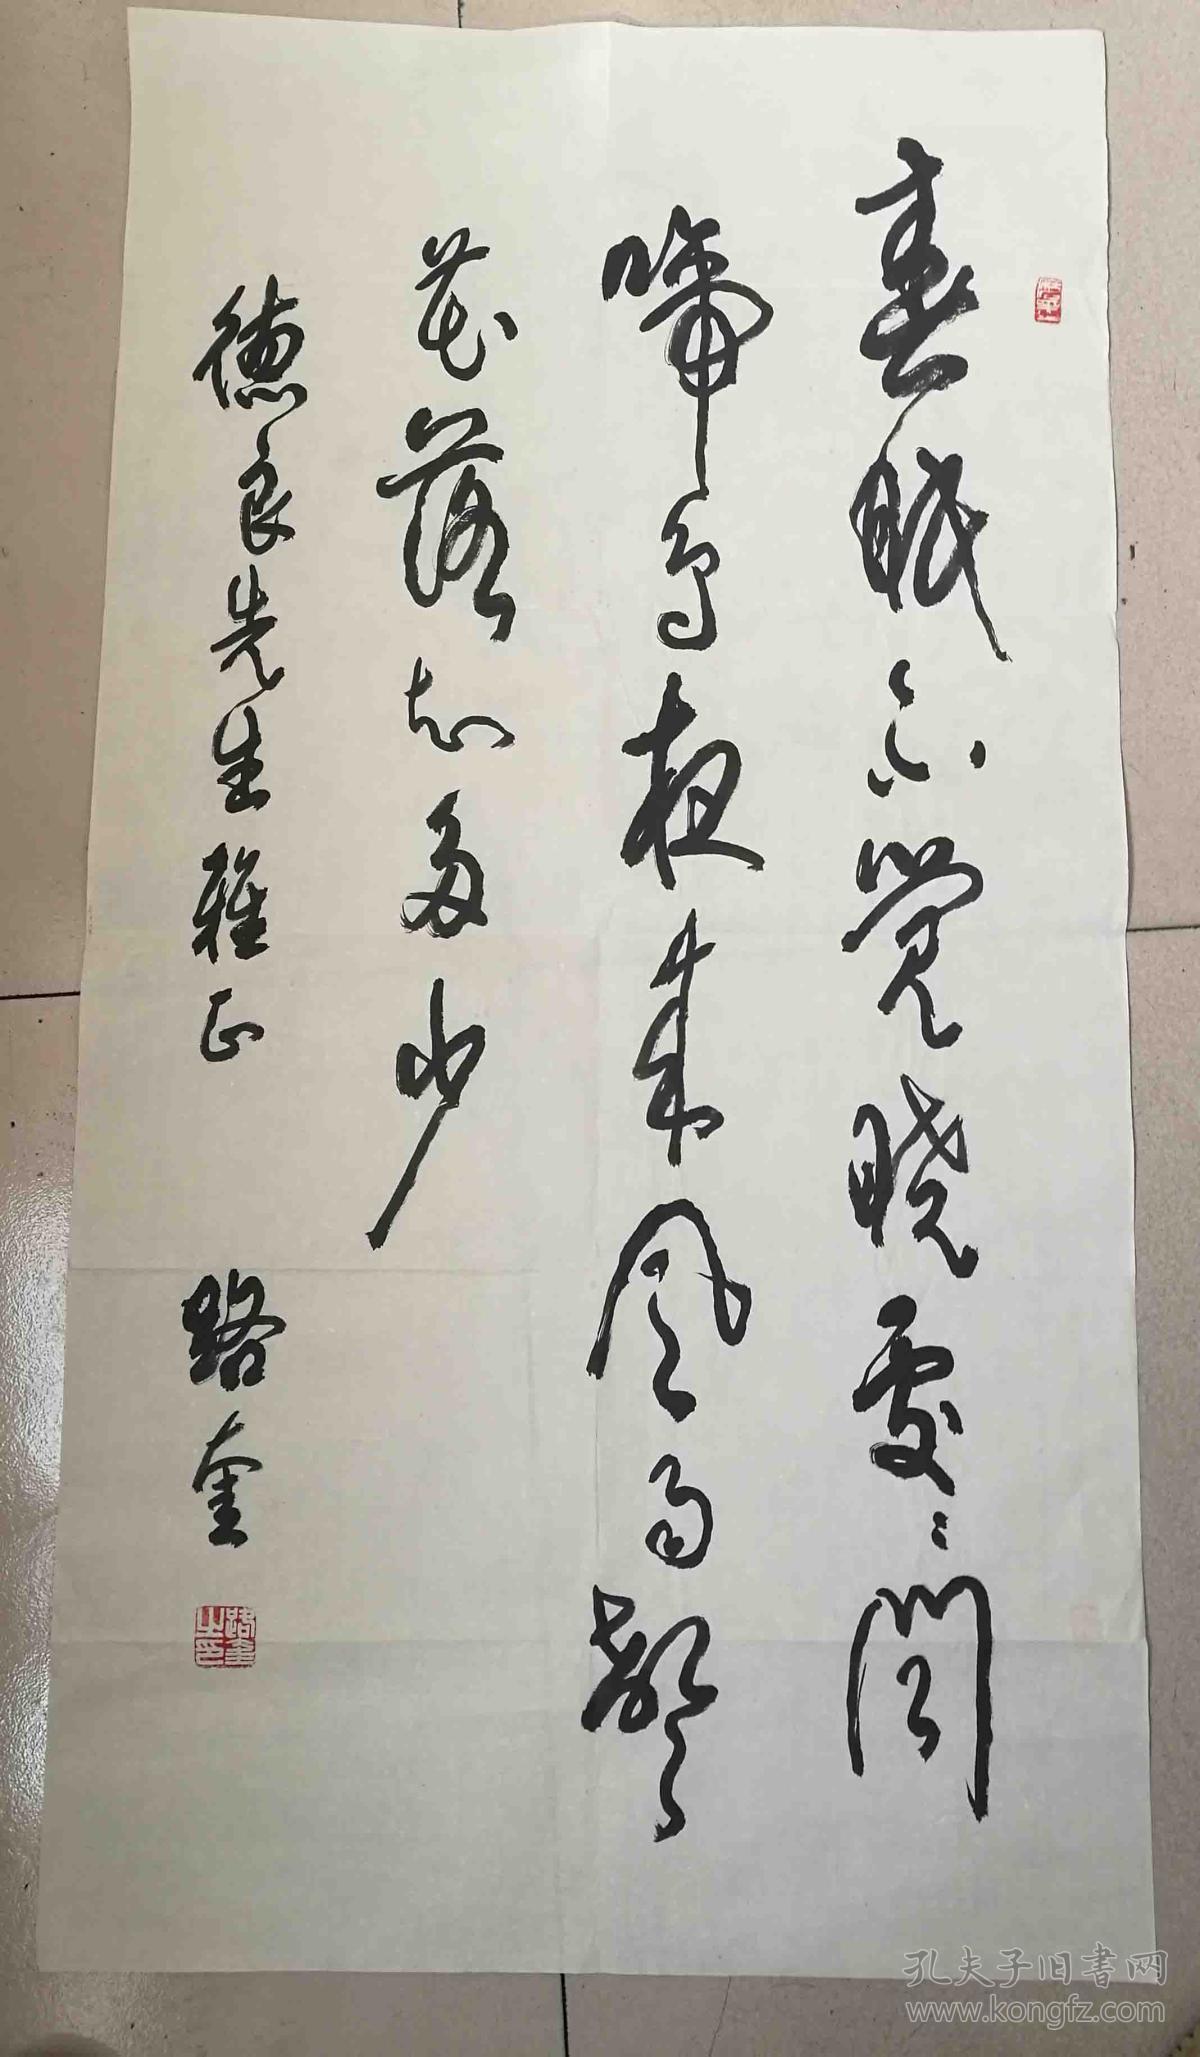 春眠不觉晓處々闻
啼鸟夜来风雨声
花落知多少
德良先生雅正 路奎
路奎之印
孔夫子旧书网
www.kongfz.com